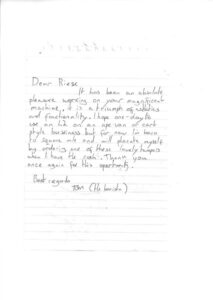 Dear Reese
It has been an absolute
pleasure working on your magnificent
machine, it is a triumph of
and functionality. I hope one day to
use an on an ape van or cart
style bussiness but for now I'm
to square mile and will placate myself
by ordering one of those lovely tampers
when I have the cash. Thank you
once again for this opportunity.
Best regards
Tom (The barista)